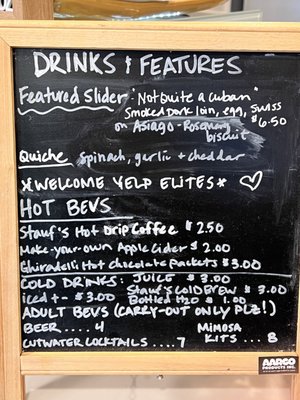 DRINKS & FEATURES
Featured Slider "Not Quite a Cuban"
Smoked pork loin, egg, swiss
on Asiago-Rosemary $6.50
biscuit
Quiche spinach, garlic + cheddar
*WELCOME YELP ELITES* ♡
HOT BEVS
Stauf's Hot Drip Coffee $2.50
Make-your-own Apple Cider $2.00
Ghiradelli Hot chocolate packets $3.00
COLD DRINKS: JUICE $3.00
iced t - $3.00 Stauf's COLD BREW $3.00
Bottled H2O $1.00
ADULT BEVS (CARRY-OUT ONLY PLZ!)
BEER.....4 MIMOSA
CUTWATER COCKTAILS.....7 KITS...8
AARCO
PRODUCTS INC.